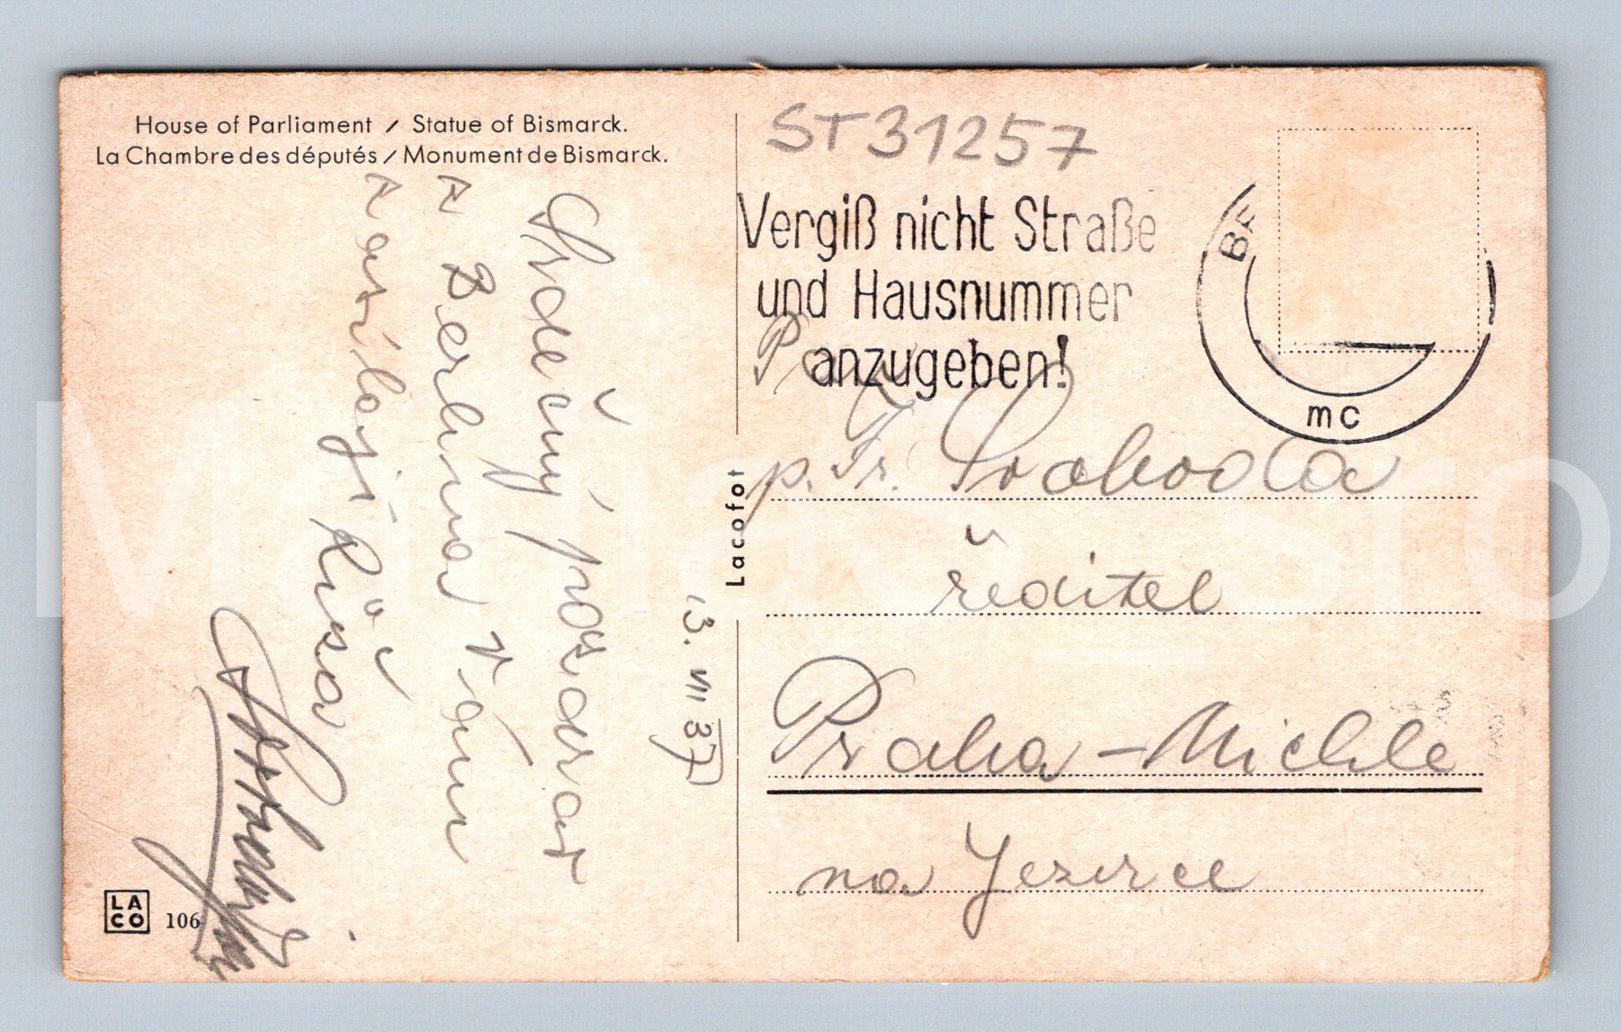 House of Parliament / Statue of Bismarck.
La Chambre des députés / Monument de Bismarck.
Srdečný pozdrav
z Berlína Vám
zasílají Růža
13. VII 37
LACO 106
Lacofot
ST31257
Vergiß nicht Straße
und Hausnummer
anzugeben!
BE
mc
Pan
p. Fr. Svoboda
ředitel
Praha - Michle
na Jezerce